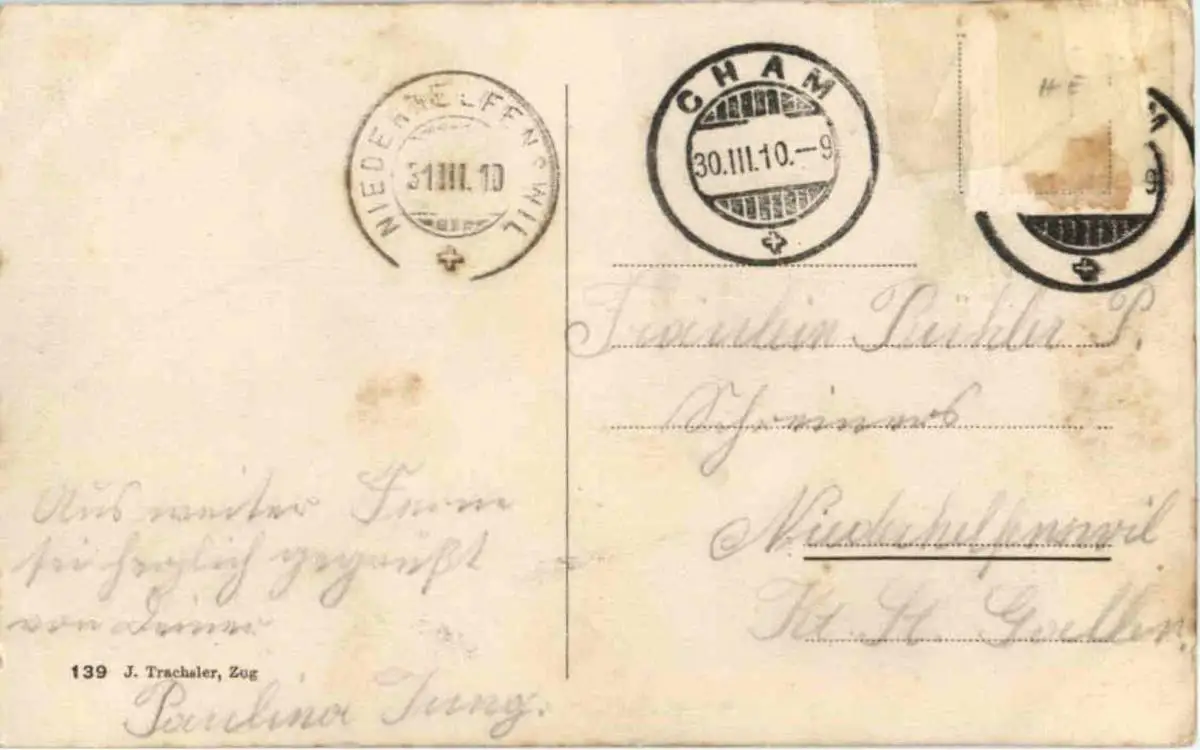 NIEDERHELFENSWIL
31.III.10
CHAM
30.III.10.–9
M
9
HE
Fräulein Bühler P.
Schreiners
Niederhelfenswil
Kt. St. Gallen.
Aus weiter Ferne
sei herzlich gegrüßt
von Deiner
Paulina Jung.
139 J. Trachsler, Zug